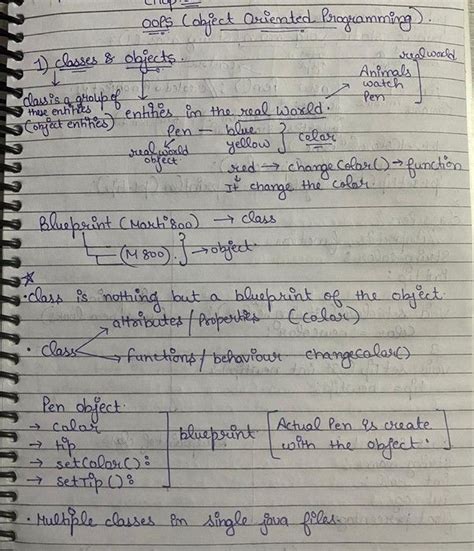 OOPS (Object Oriented Programming).
1) Classes & Objects.
real world
Animals
watch
Pen
class is a group of
these entities
(object entities)
entities in the real world.
Pen — blue
yellow } color
real world
object
red → changeColor() → function
It change the color.
Blueprint (Marti 800) → class
(M 800). } → object.
• class is nothing but a blueprint of the object.
attributes / Properties (color)
• Class
functions / behaviour changecolor()
Pen object.
→ color
→ tip
→ setColor():
→ setTip():
blueprint
[Actual Pen is create
with the object.]
• Multiple classes in single java files.